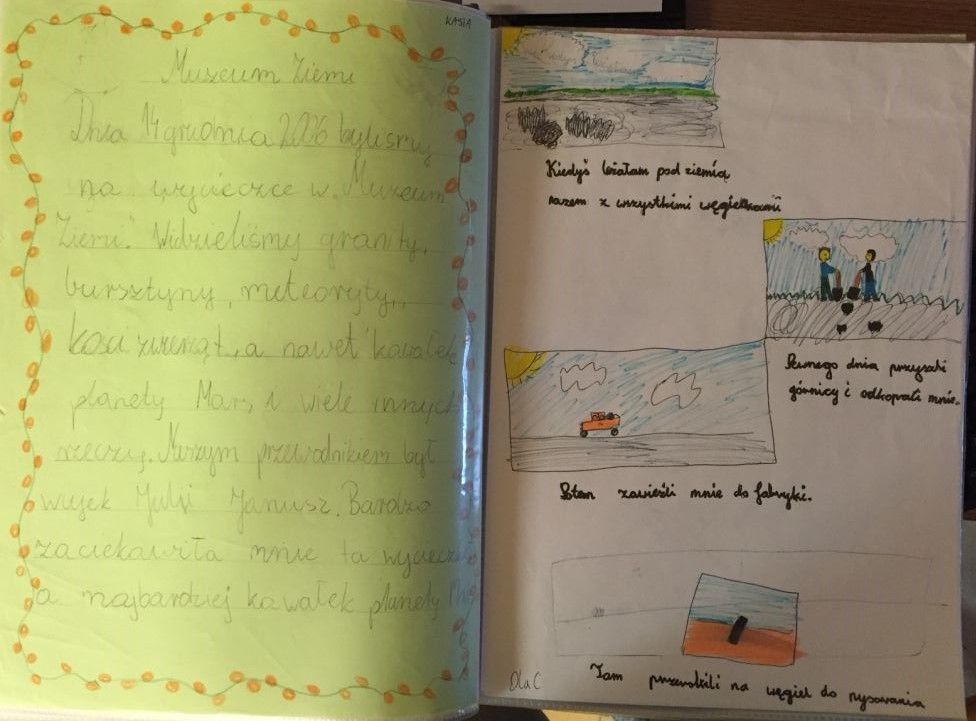 KASIA
Muzeum Ziemi
Dnia 14 grudnia 2006 byliśmy
na wycieczce w "Muzeum
Ziemi". Widzieliśmy granity,
bursztyny, meteoryty,
kości zwierząt, a nawet kawałek
planety Mars, i wiele innych
rzeczy. Naszym przewodnikiem był
wujek Julki Janusz. Bardzo
zaciekawiła mnie ta wycieczka
a najbardziej kawałek planety
Kiedyś leżałam pod ziemią
razem z wszystkimi węgielkami
Pewnego dnia przyszli
górnicy i odkopali mnie.
Potem zawieźli mnie do fabryki.
Tam przerobili na węgiel do rysowania
Ola C